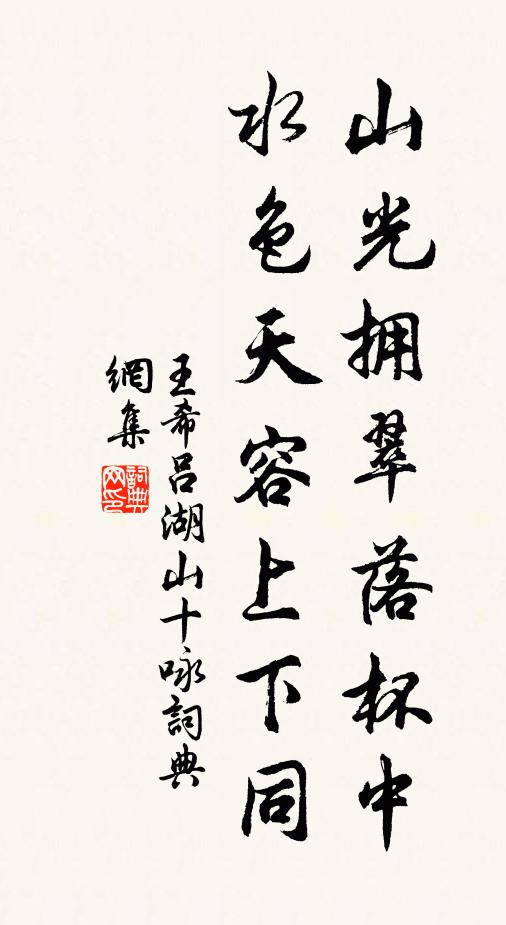 山光拥翠落杯中
水色天容上下同
王希吕湖山十咏詞典
網集
詞典网印